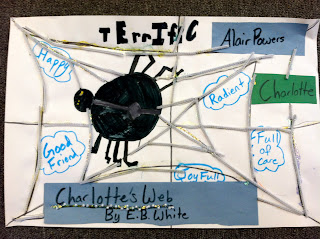 TErrIfIC
Alair Powers
Happy
Radient
Charlotte
Good
Friend
Full
of
care
Joyfull
Charlotte's Web
By E.B. White